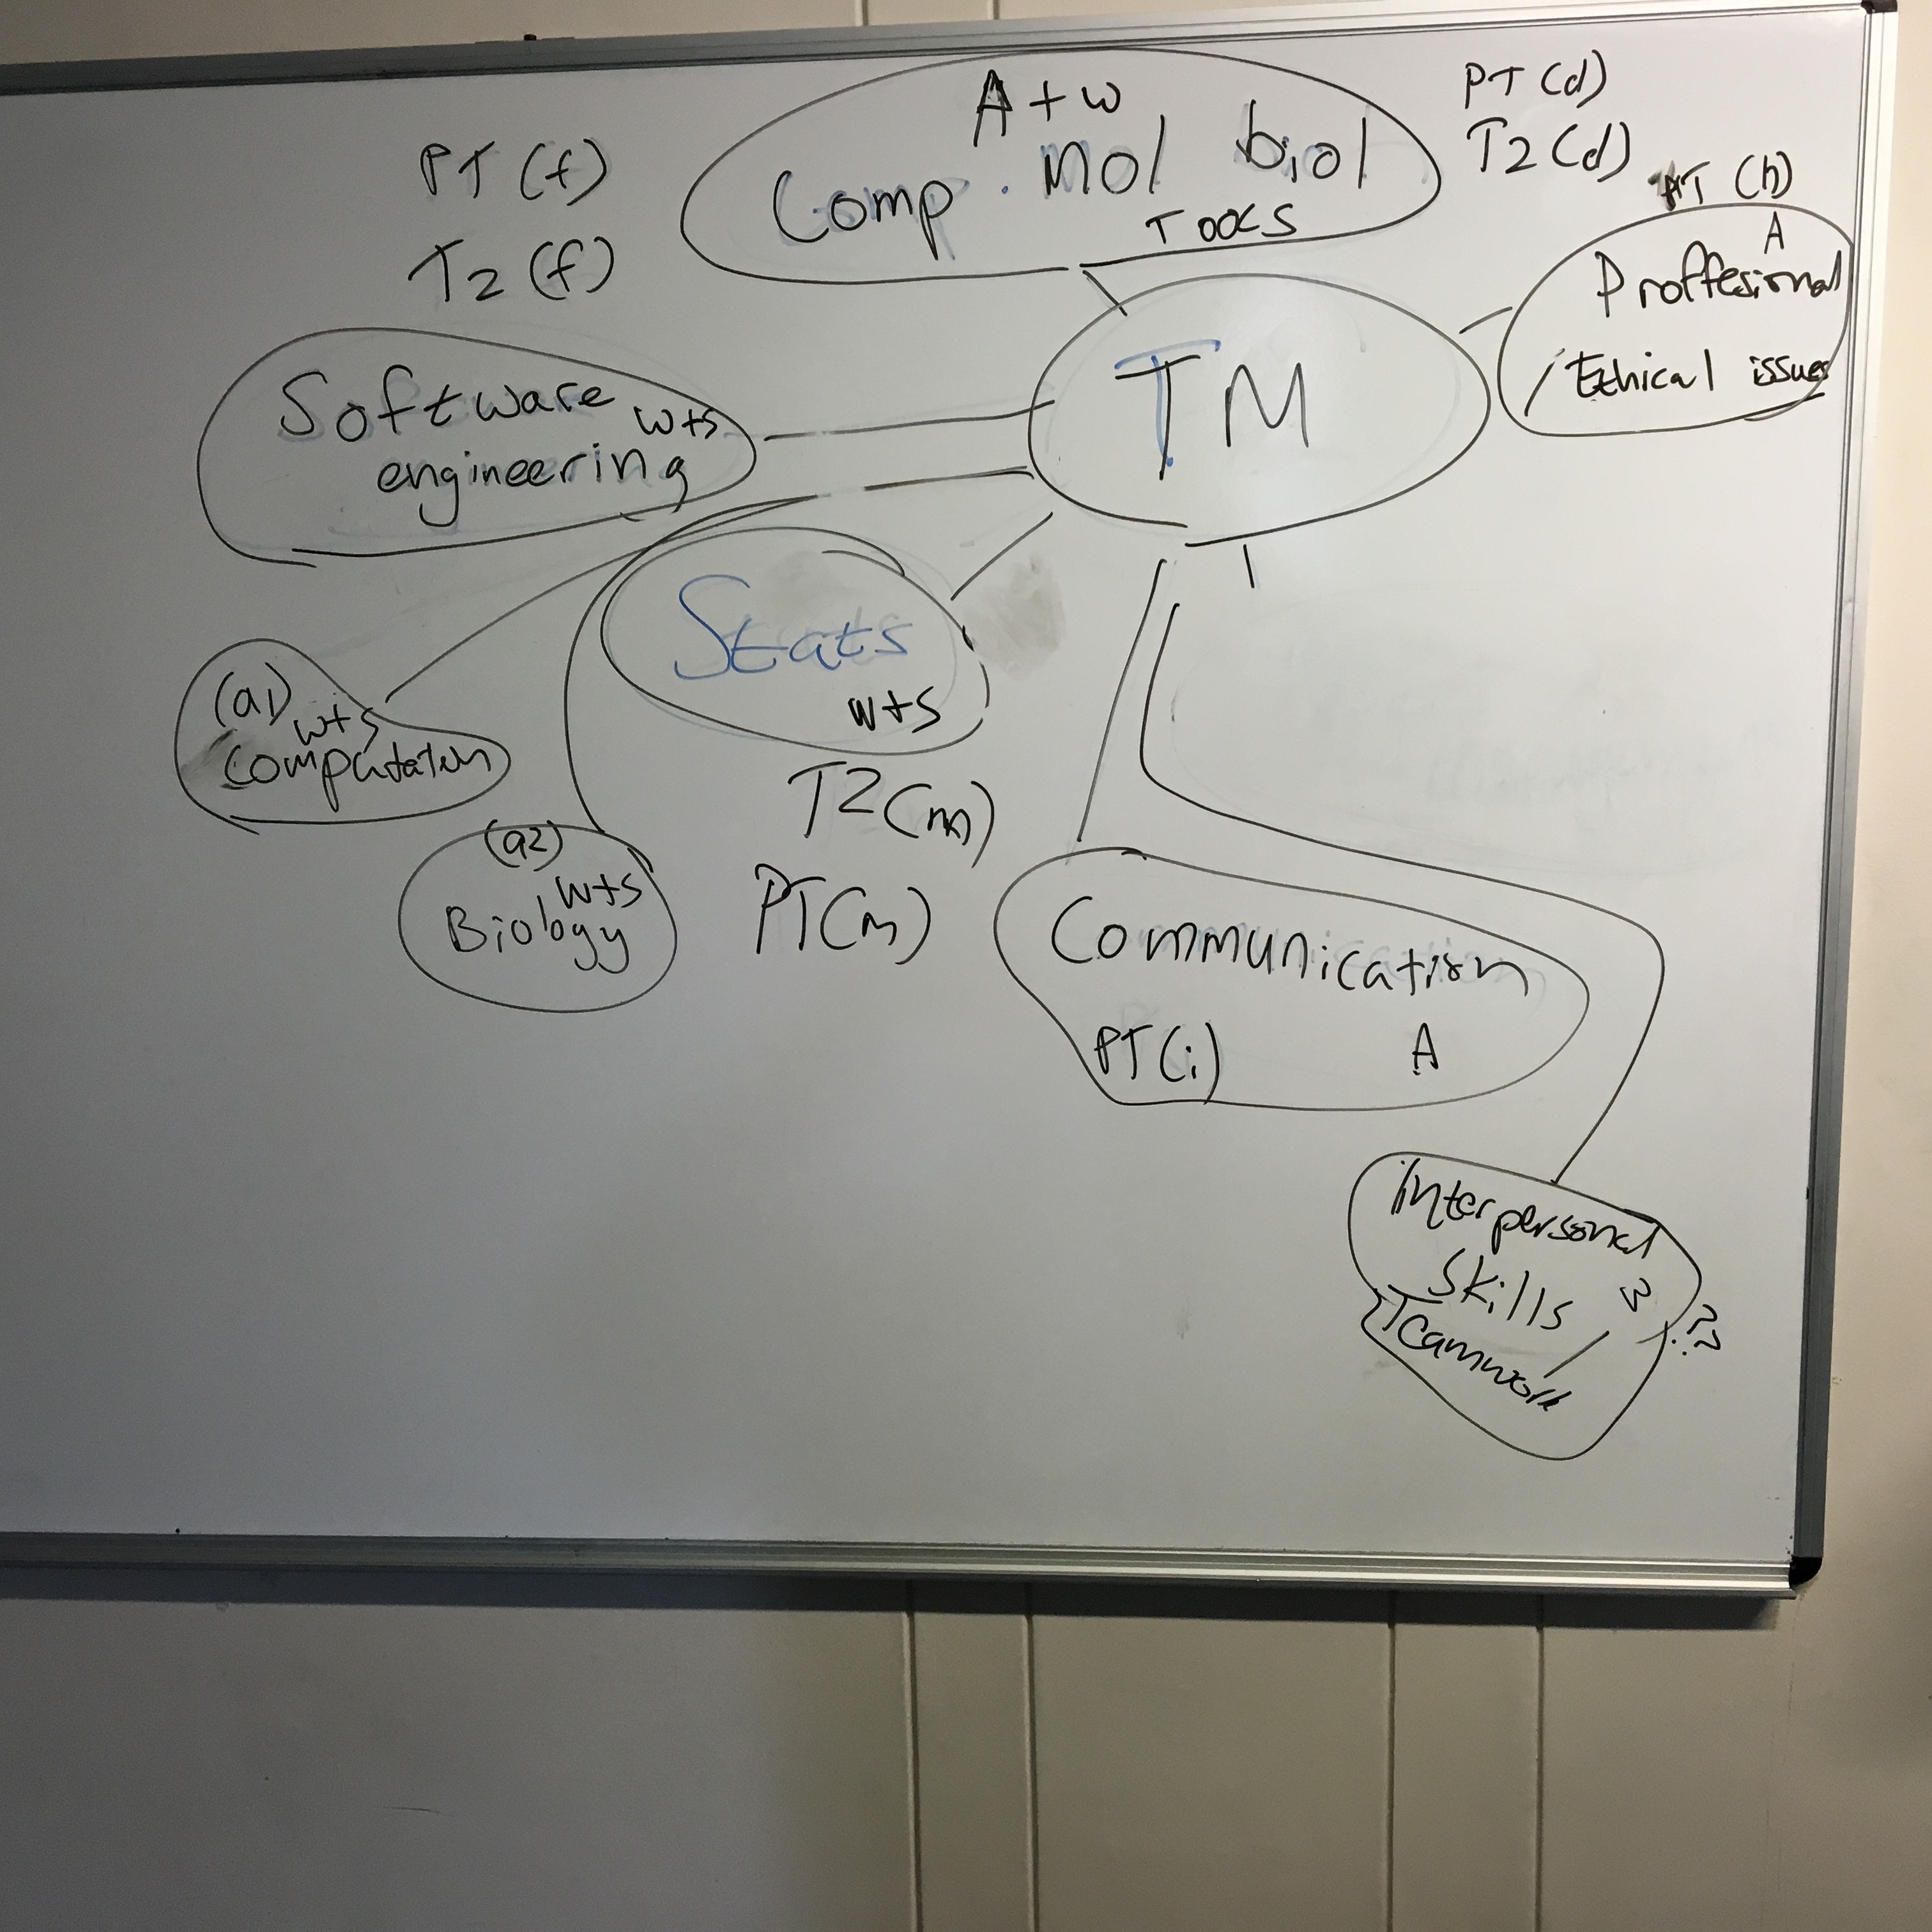 A + w
Comp. mol biol
TOOLS
PT (d)
T2 (d)
PT (f)
T2 (f)
PT (h)
A
Proffesional
/Ethical issues
TM
Software w+s
engineering
Stats
w+s
T2(m)
PT(m)
(a1)
w+s
Computation
(a2)
w+s
Biology
Communication
PT(i) A
Interpersonal
Skills
Teamwork
??